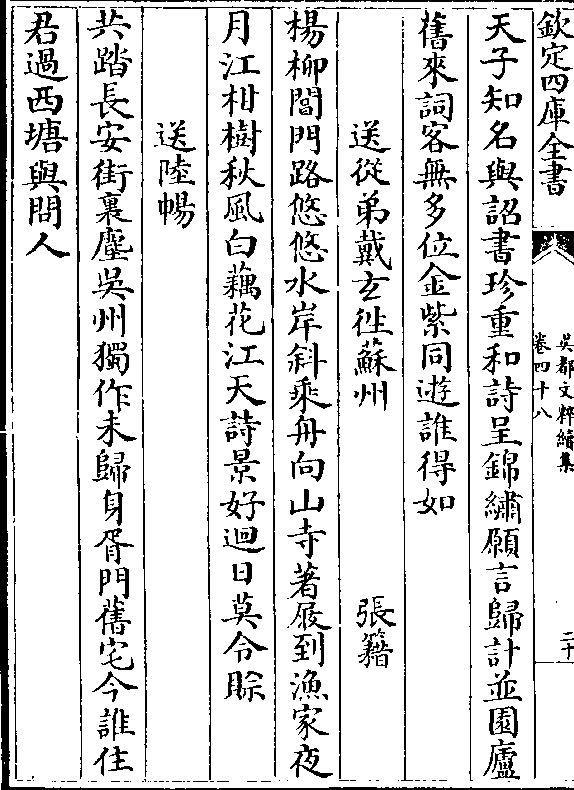 欽定四庫全書
吳都文粹續集
卷四十八
二十
天子知名與詔書珍重和詩呈錦繡願言歸計並園廬
舊來詞客無多位金紫同遊誰得如
送從弟戴玄徃蘇州
張籍
楊柳閶門路悠悠水岸斜乘舟向山寺著屐到漁家夜
月江柑樹秋風白藕花江天詩景好迴日莫令賒
送陸暢
共踏長安街裏塵吳州獨作未歸身胥門舊宅今誰住
君過西塘與問人